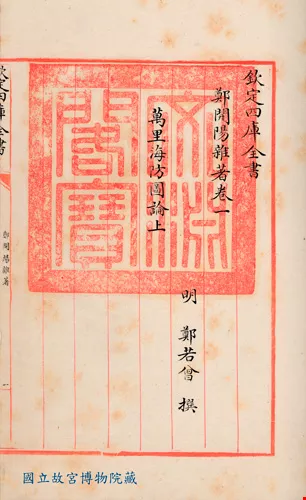 欽定四庫全書
鄭開陽雜著卷一
萬里海防圖論上
明 鄭若曾 撰
文淵閣寶
欽定四庫全書
鄭開陽雜著
一
國立故宮博物院藏